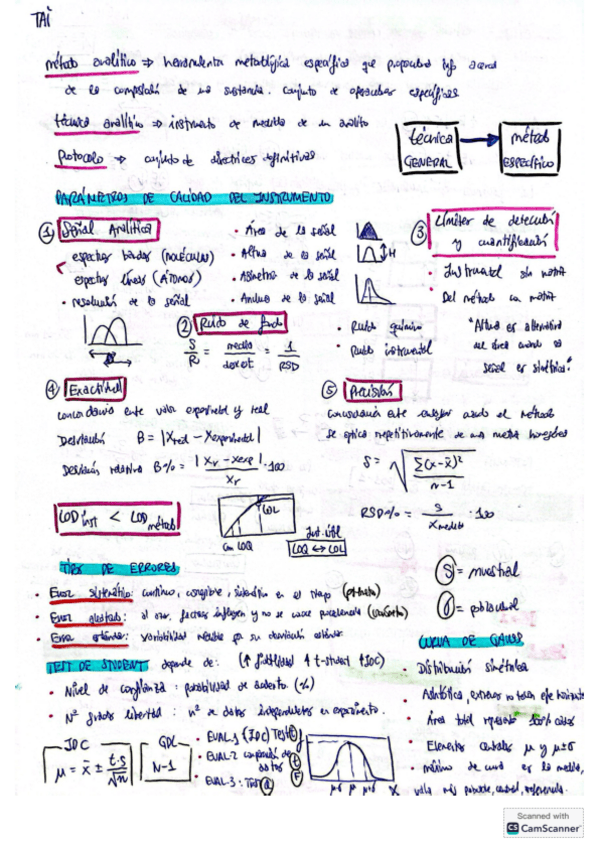 TAI
método analítico => herramienta metodológica específica que proporciona info acerca
de la composición de una sustancia. Conjunto de operaciones específicas
técnica analítica => instrumento de medida de un analito
Protocolo -> conjunto de directrices definitivas
técnica GENERAL
método ESPECÍFICO
PARÁMETROS DE CALIDAD DEL INSTRUMENTO
① Señal Analítica
espectros bandas (moléculas)
espectros líneas (ÁTOMOS)
• resolución de la señal
• Área de la señal
• Altura de la señal
• Asimetría de la señal
• Anchura de la señal
H
② Ruido de fondo
S/R = media/desvest = 1/RSD
• Ruido químico
• Ruido instrumental
③ Límites de detección y cuantificación
• Instrumental sin matriz
• Del método con matriz
"Altura es alternativa
del área cuando la
señal es simétrica."
④ Exactitud
concordancia entre valor experimental y real
B = |Xreal - Xexperimental|
Desviación relativa B% = |Xr - Xexp|/Xr · 100
⑤ Precisión
Concordancia entre cuando el método
se aplica repetitivamente de una muestra homogénea
S = √Σ(x-x̄)²/n-1
RSD% = s/Xmedia · 100
LOD inst < LOD método
LOL
LOQ
LOQ <-> LOL
TIPOS DE ERRORES
• Error sistemático: continuo, corregible, sistemático en el tiempo
• Error aleatorio: al azar, factores influyen y no se conoce procedencia
• Error estándar: variabilidad medida por su desviación estándar
S = muestral
σ = poblacional
TEST DE STUDENT depende de:
• Nivel de confianza: probabilidad de acierto (%)
• Nº grados libertad: nº de datos independientes en experimento.
IDC
μ = x̄ ± t·s/√n
GDL
N-1
• EVAL 1 (IDC) Test
• EVAL 2 comparación de datos t F
• EVAL 3: Test Q
μ-σ μ μ+σ X
CURVA DE GAUSS
• Distribución simétrica
• Asintótica, extremos no tocan eje horizontal
• Área total representa 100% casos
• Elementos centrales μ y μ±σ
• máximo de curva es la media,
valor más probable, central, referencia.
Scanned with
CS CamScanner